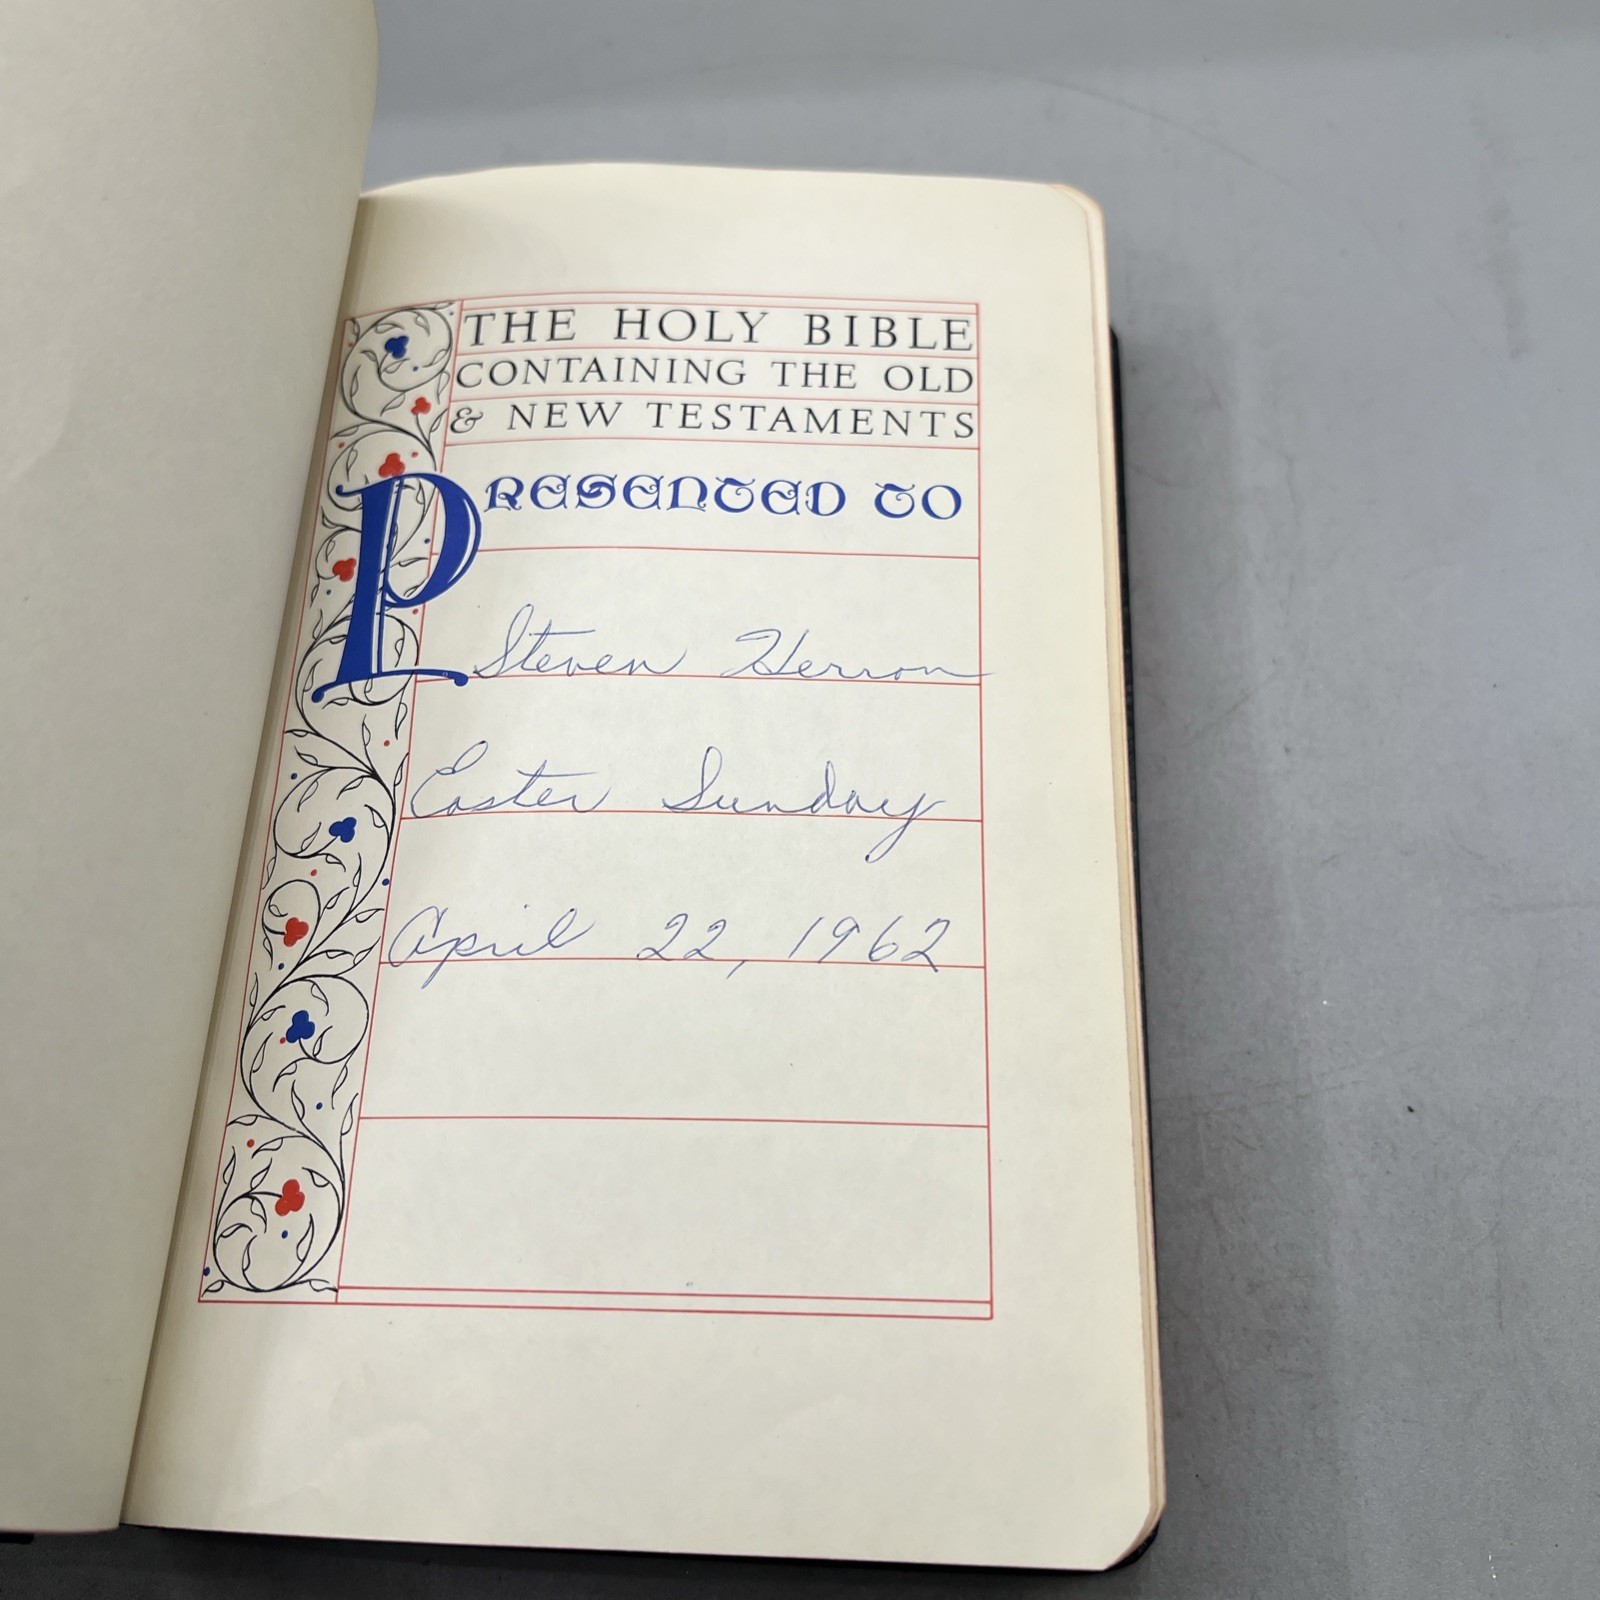 THE HOLY BIBLE
CONTAINING THE OLD
& NEW TESTAMENTS
PRESENTED TO
Steven Herron
Easter Sunday
April 22, 1962